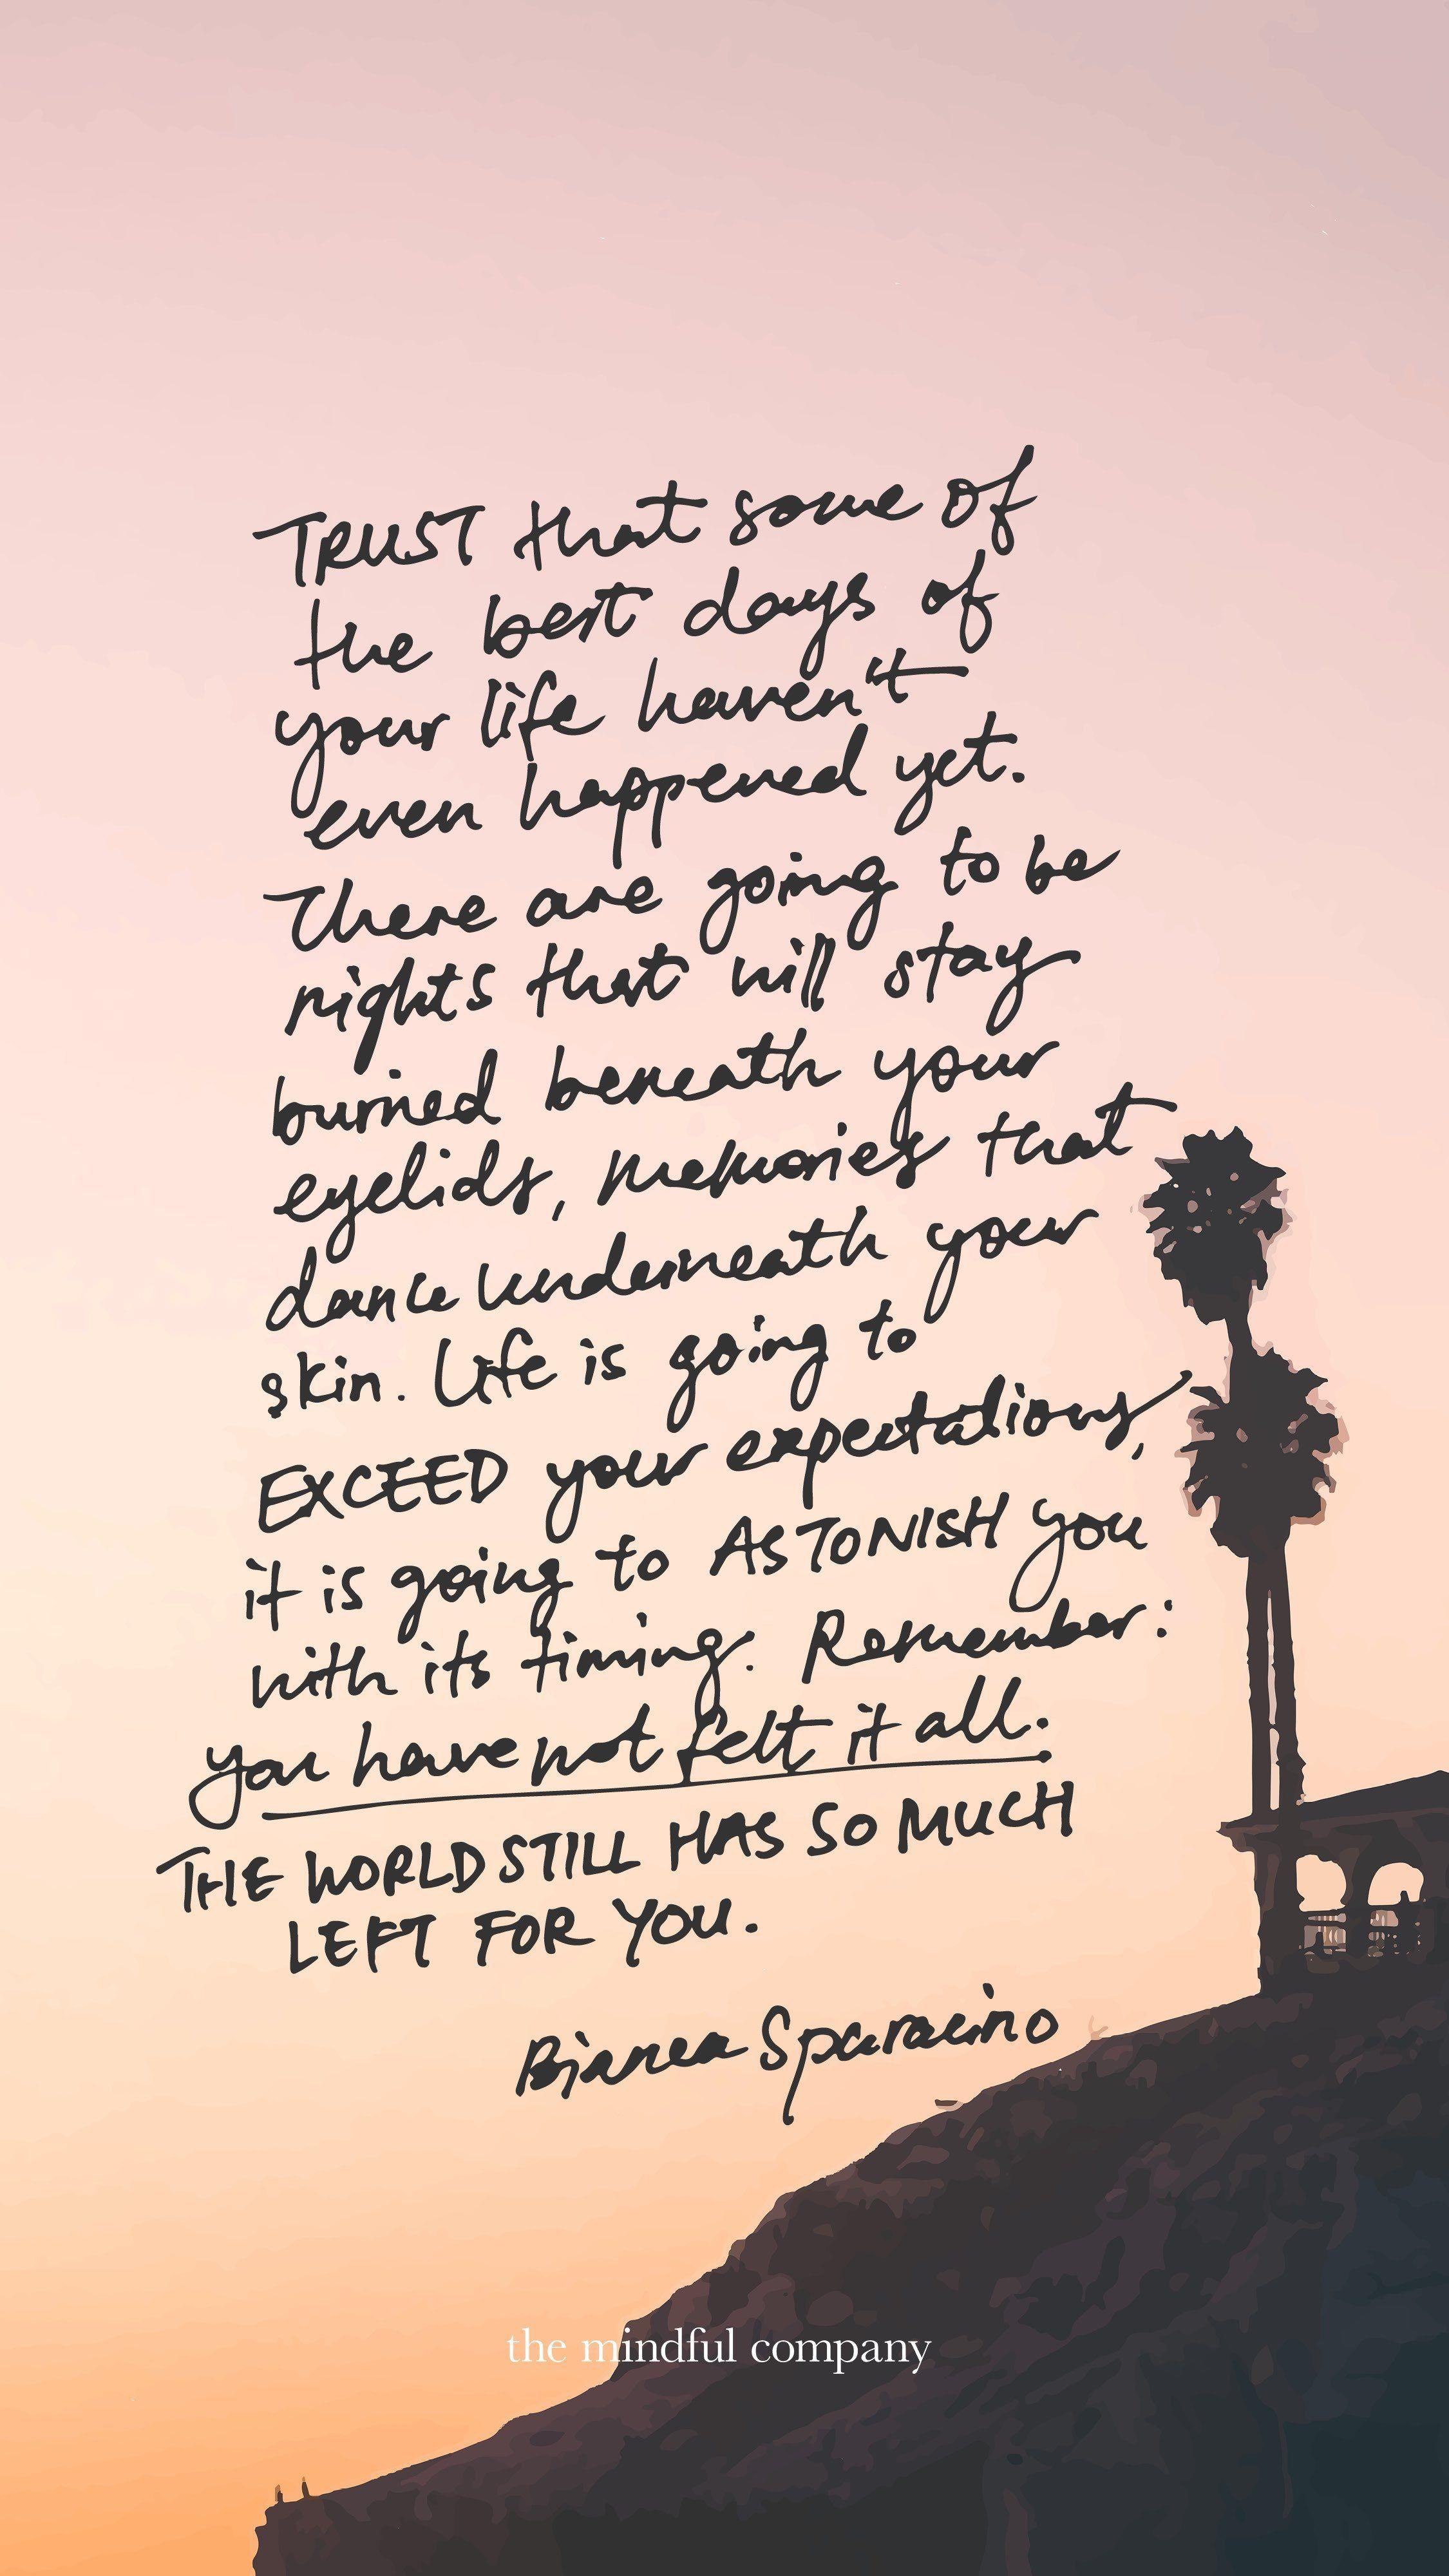 TRUST that some of
the best days of
your life haven't
even happened yet.
There are going to be
nights that will stay
burned beneath your
eyelids, memories that
dance underneath your
skin. Life is going to
EXCEED your expectations,
it is going to ASTONISH you
with its timing. Remember:
you have not felt it all.
THE WORLD STILL HAS SO MUCH
LEFT FOR YOU.
Bianca Sparacino
the mindful company